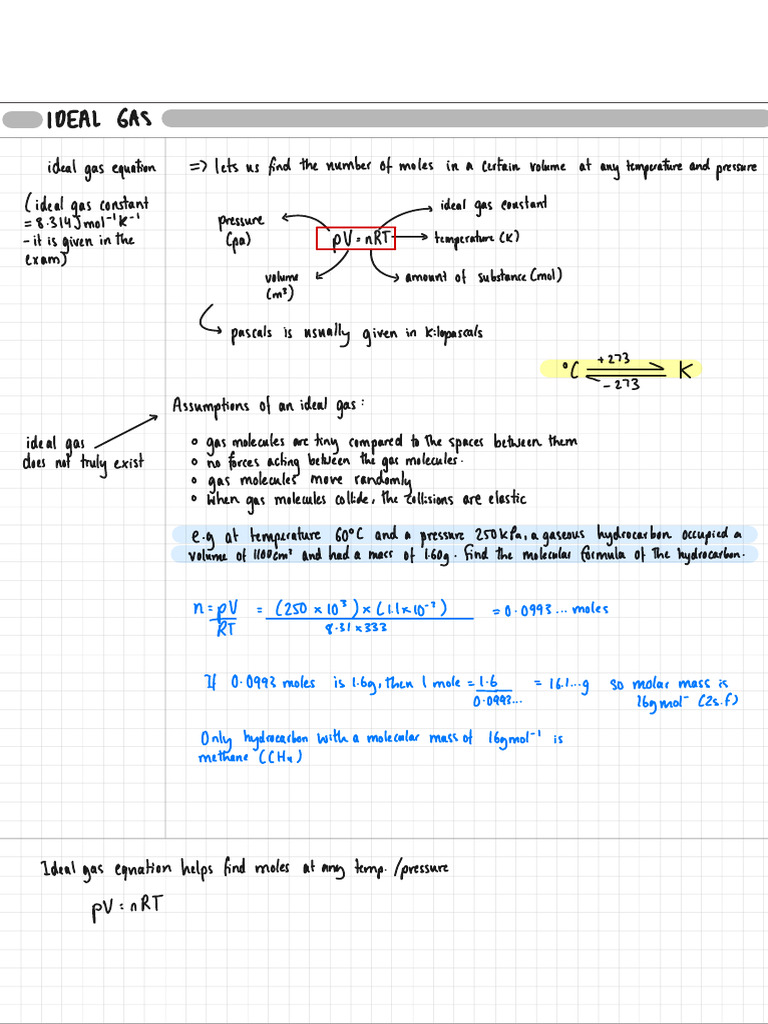 IDEAL GAS
ideal gas equation => lets us find the number of moles in a certain volume at any temperature and pressure
(ideal gas constant
= 8.314 J mol⁻¹ K⁻¹
- it is given in the
exam)
ideal gas constant
pressure
(pa)
pV = nRT
temperature (K)
volume
(m³)
amount of substance (mol)
pascals is usually given in kilopascals
°C +273 K
-273
Assumptions of an ideal gas:
ideal gas
does not truly exist
o gas molecules are tiny compared to the spaces between them
o no forces acting between the gas molecules.
o gas molecules move randomly
o When gas molecules collide, the collisions are elastic
e.g at temperature 60°C and a pressure 250kPa, a gaseous hydrocarbon occupied a
volume of 1100cm³ and had a mass of 1.60g. Find the molecular formula of the hydrocarbon.
n = pV/RT = (250 x 10³) x (1.1 x 10⁻³)/8.31 x 333 = 0.0993... moles
If 0.0993 moles is 1.6g, then 1 mole = 1.6/0.0993... = 16.1...g so molar mass is
16gmol⁻ (2s.f)
Only hydrocarbon with a molecular mass of 16gmol⁻¹ is
methane (CH₄)
Ideal gas equation helps find moles at any temp. /pressure
pV = nRT